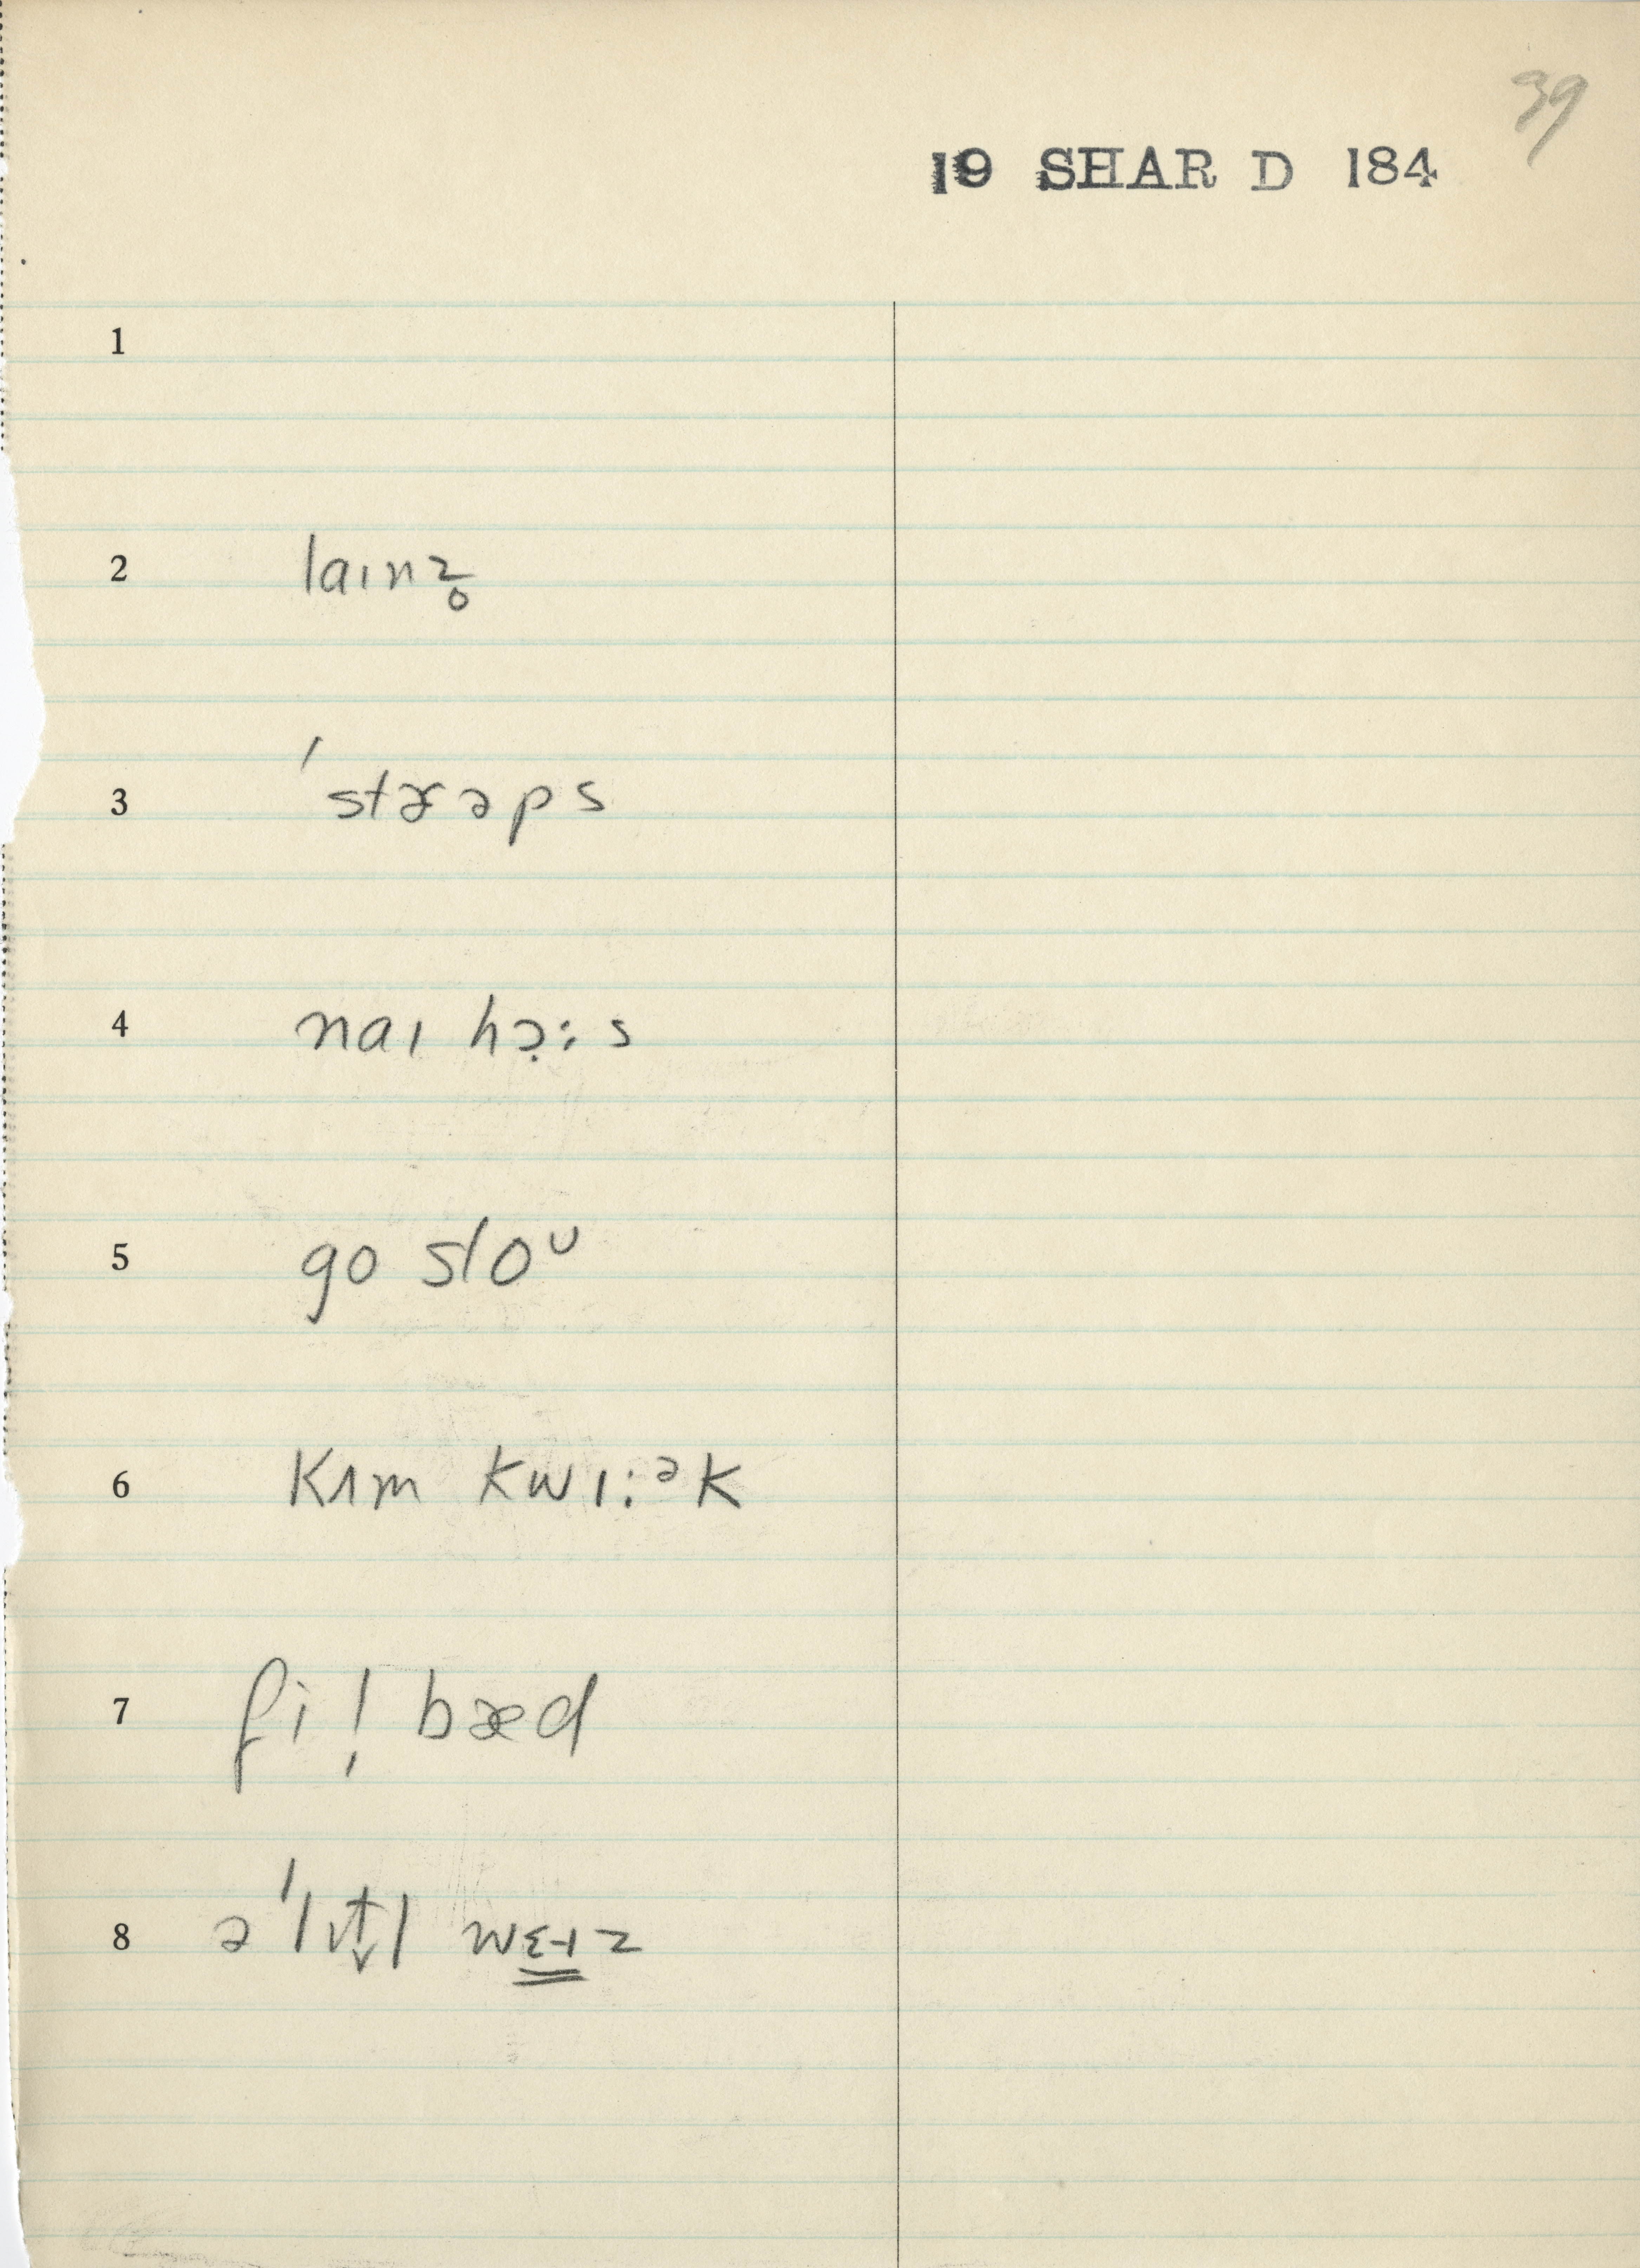 39
19 SHAR D 184
1
2 laɪnz̥
3 ˈstɚəps
4 naɪ hɔ̣:s
5 go sloᶷ
6 kʌm kwɪ:ᵊk
7 fi! bæd
8 ə ˈlɪt̬l wɛ̳˧z